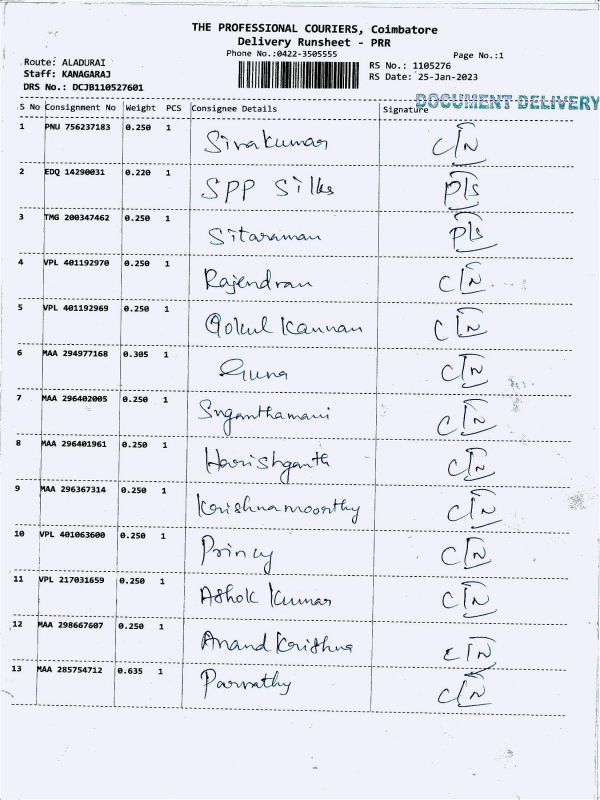 THE PROFESSIONAL COURIERS, Coimbatore
Delivery Runsheet - PRR
Phone No.:0422-3505555
Page No.:1
Route: ALADURAI
RS No.: 1105276
Staff: KANAGARAJ
RS Date: 25-Jan-2023
DRS No.: DCJB110527601
DOCUMENT DELIVERY
S No Consignment No Weight PCS Consignee Details Signature
1 PNU 756237183 0.250 1 Sivakumar C/N
2 EDQ 14290031 0.220 1 SPP Silks P/s
3 TMG 200347462 0.250 1 Sitaraman P/s
4 VPL 401192970 0.250 1 Rajendran C/N
5 VPL 401192969 0.250 1 Gokul Kannan C/N
6 MAA 294977168 0.305 1 Guna C/N
7 MAA 296402005 0.250 1 Suganthamani C/N
8 MAA 296401961 0.250 1 Harishganth C/N
9 MAA 296367314 0.250 1 Krishnamoorthy C/N
10 VPL 401063600 0.250 1 Princy C/N
11 VPL 217031659 0.250 1 Ashok Kumar C/N
12 MAA 298667607 0.250 1 Anand Krishna C/N
13 MAA 285754712 0.635 1 Parvathy C/N